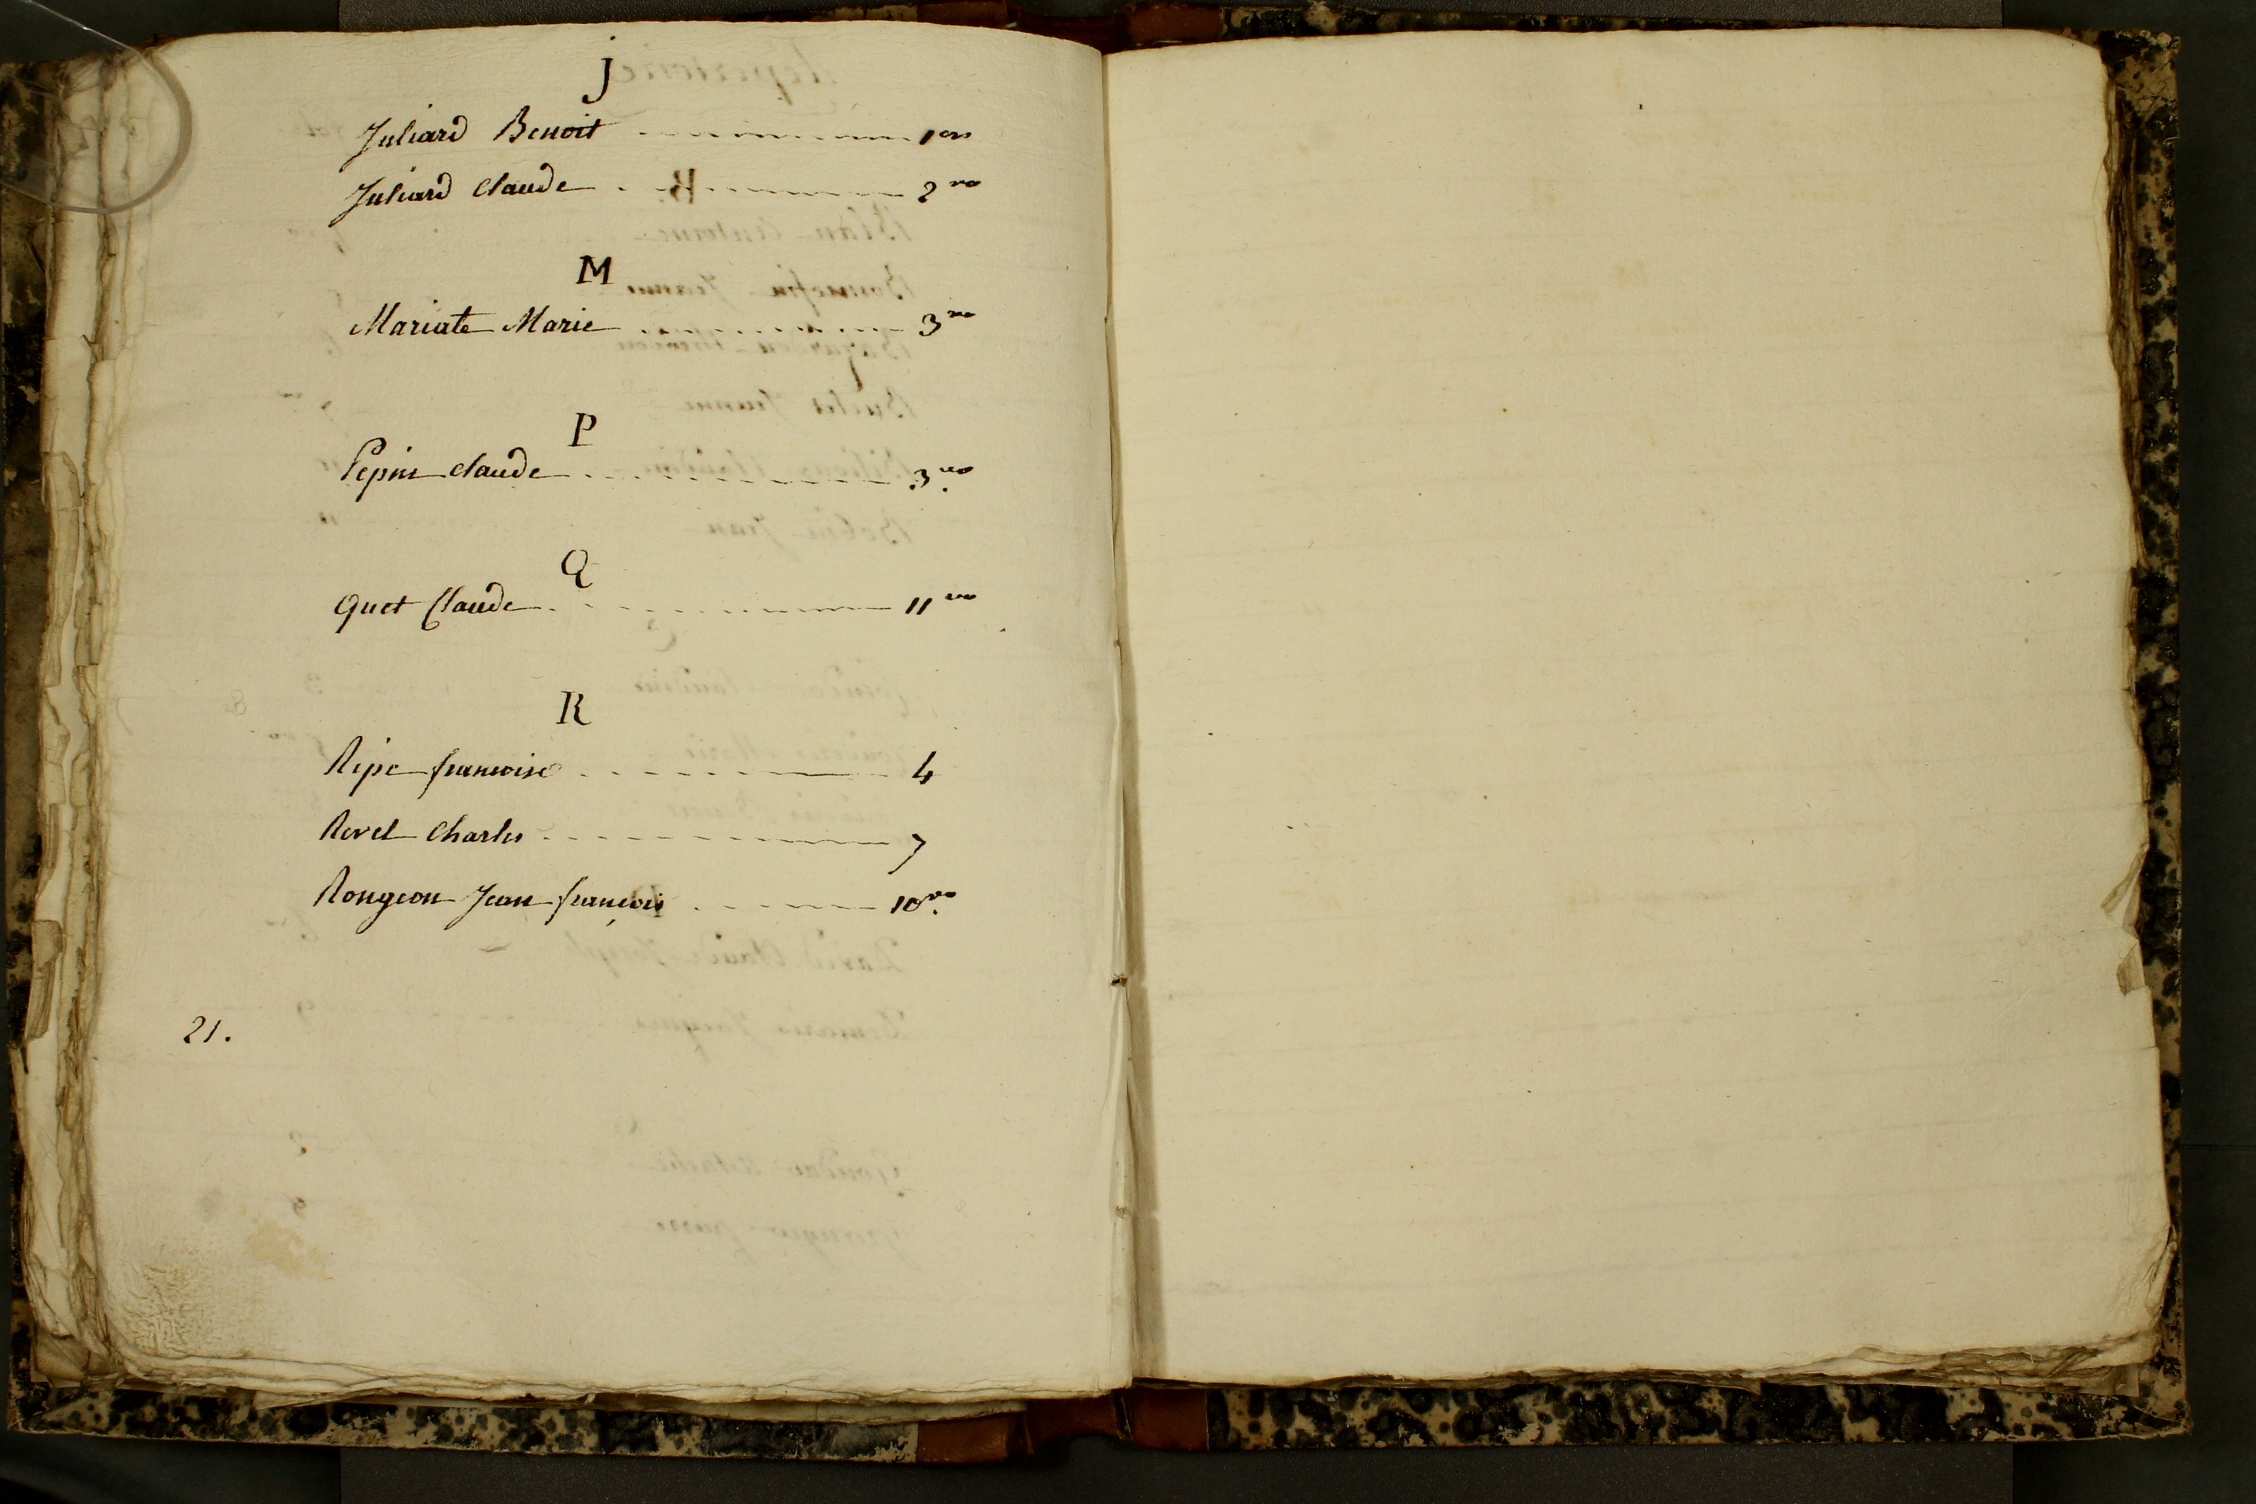 J
Juliard Benoit 1ero
Juliard Claude 2 vo
M
Mariate Marie 3 vo
P
Pepin Claude 3 vo
Q
Quet Claude 11 vo
R
Ripe francoise 4
Revel Charles 7
Rongeon Jean françois 10 vo
21.